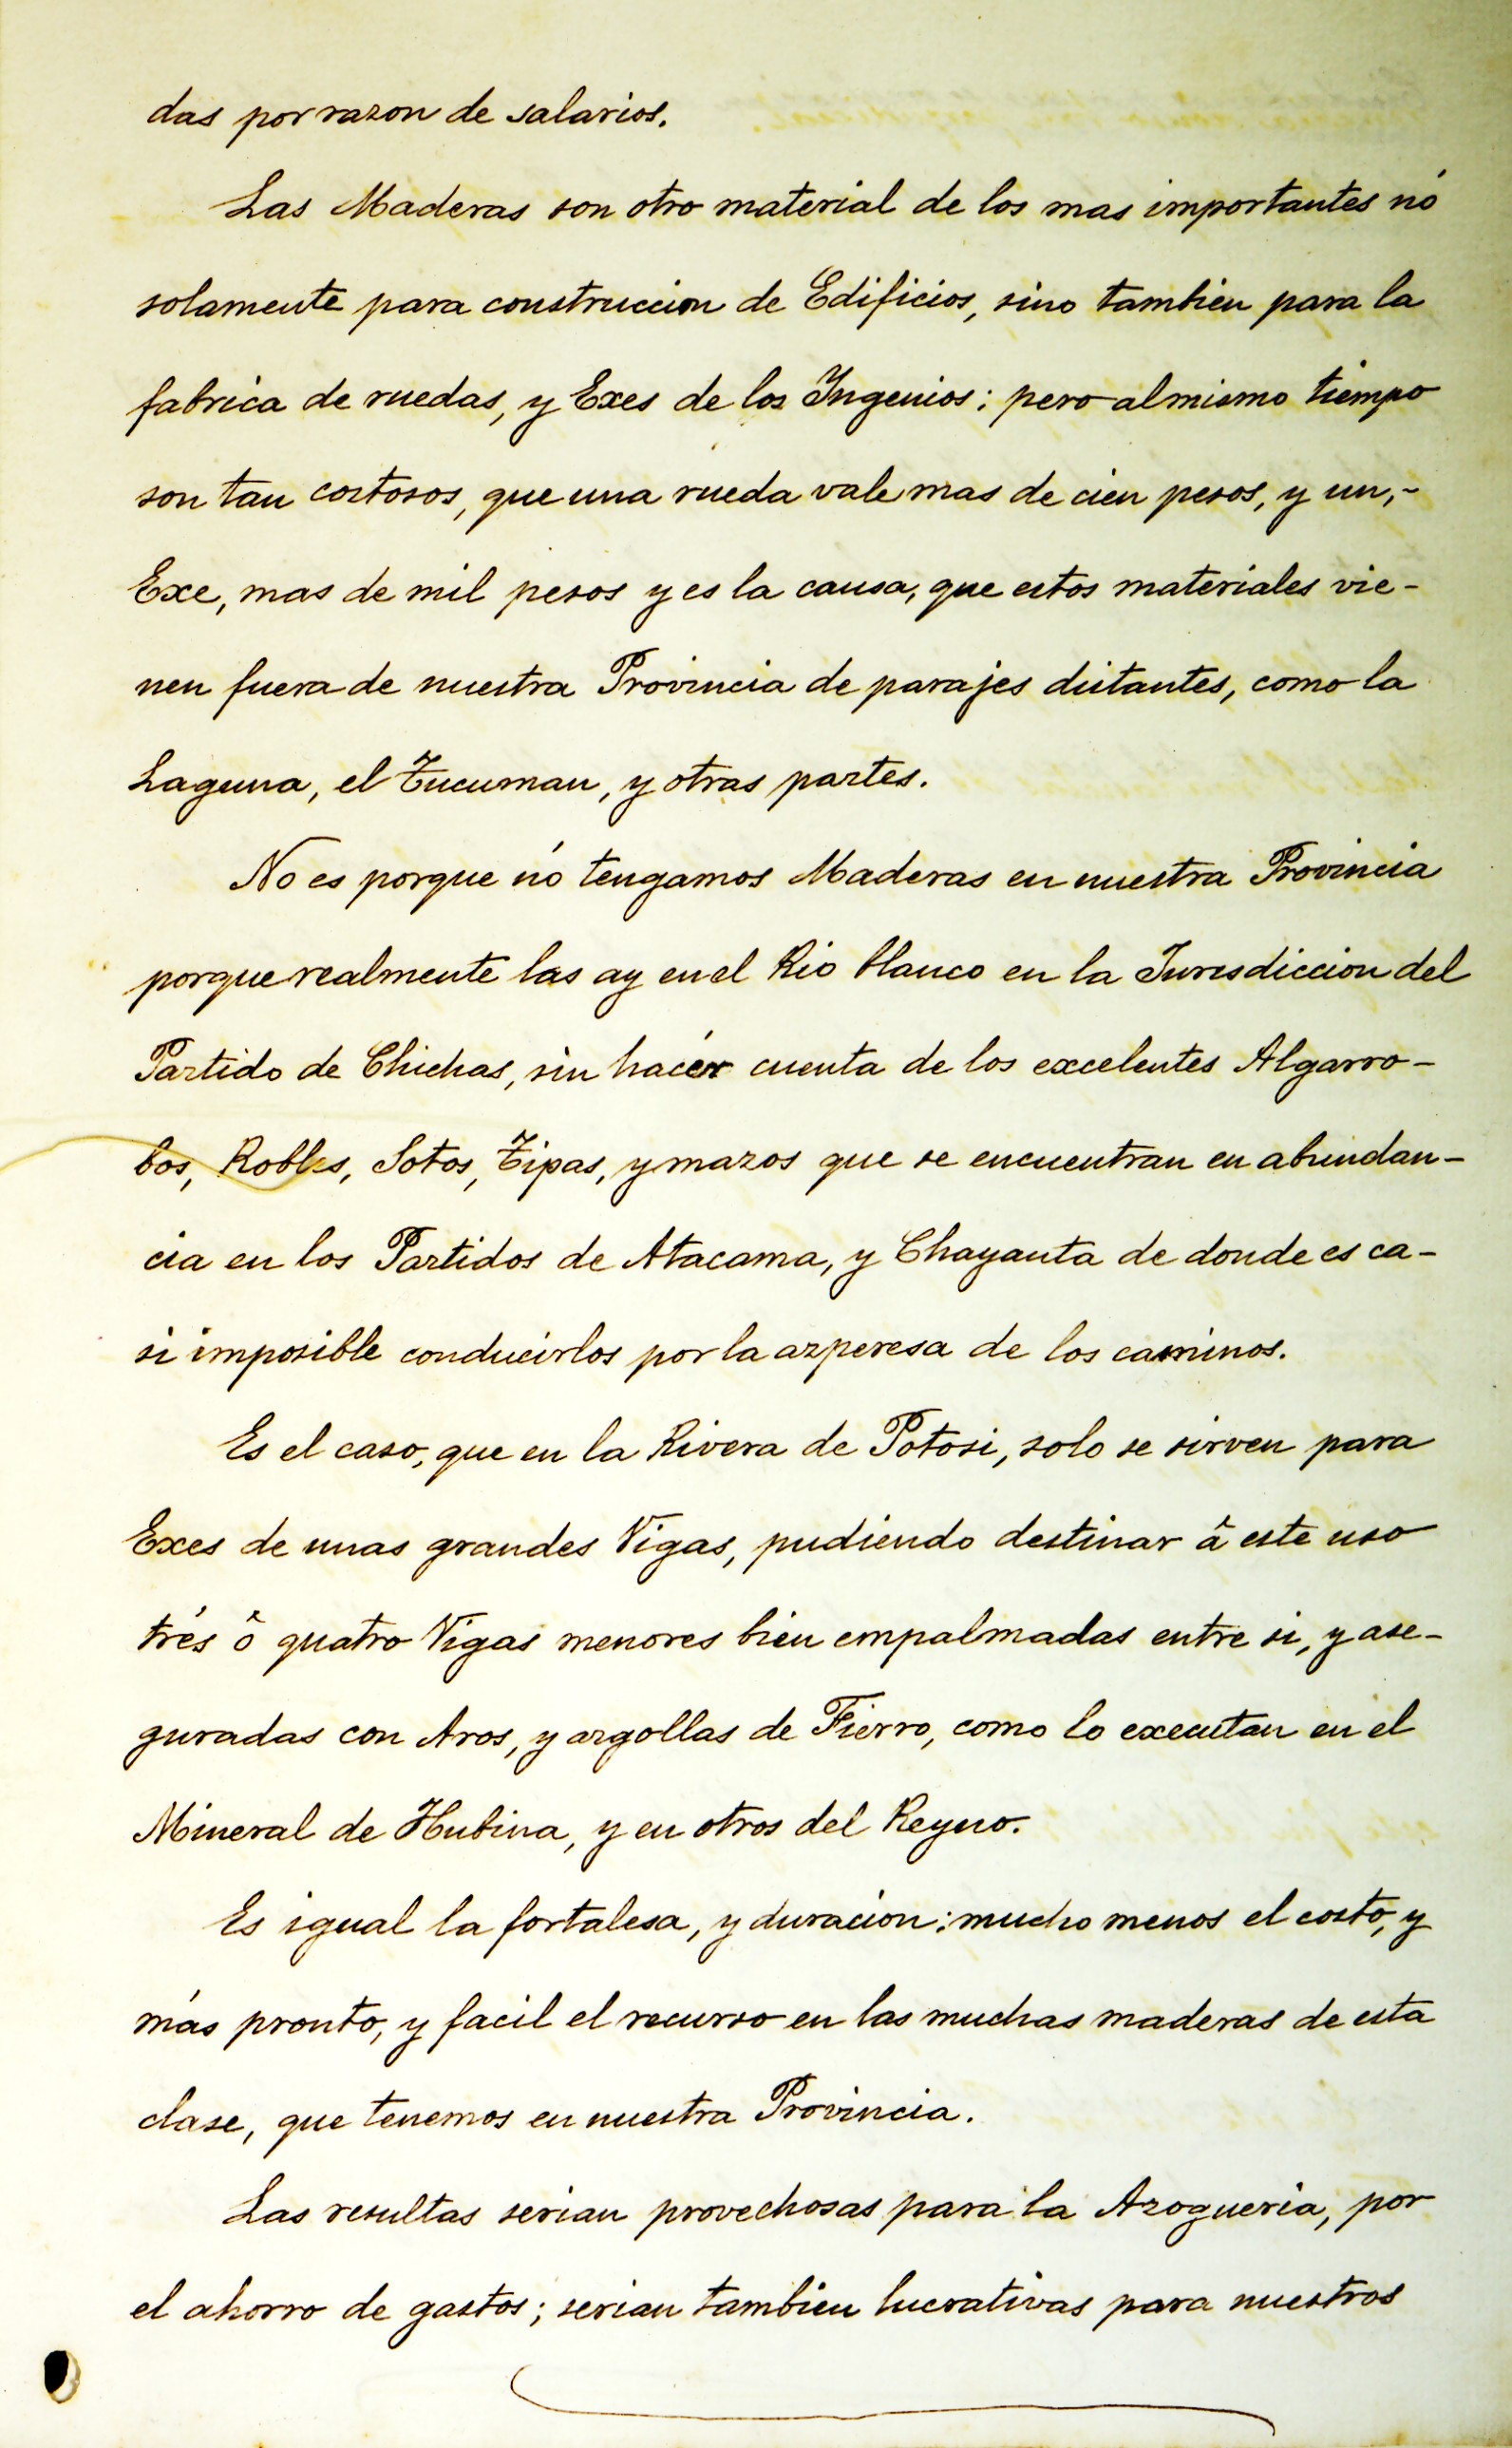 das por razon de salarios.
Las Maderas son otro material de los mas importantes nó
solamente para construccion de Edificios, sino tambien para la
fabrica de ruedas, y Exes de los Yngenios; pero al mismo tiempo
son tan costosos, que una rueda vale mas de cien pesos, y un,-
Exe, mas de mil pesos y es la causa, que estos materiales vie-
nen fuera de nuestra Provincia de parajes distantes, como la
Laguna, el Tucuman, y otras partes.
No es porque nó tengamos Maderas en nuestra Provincia
porque realmente las ay en el Rio blanco en la Jurisdiccion del
Partido de Chichas, sin hacér cuenta de los excelentes Algarro-
bos, Robles, Sotos, Tipas, y mazos que se encuentran en abundan-
cia en los Partidos de Atacama, y Chayanta de donde es ca-
si imposible conducirlos por la azperesa de los caminos.
Es el caso, que en la Rivera de Potosi, solo se sirven para
Exes de unas grandes Vigas, pudiendo destinar â este uso
trés ô quatro Vigas menores bien empalmadas entre si, y ase-
guradas con Aros, y argollas de Fierro, como lo executan en el
Mineral de Hubina, y en otros del Reyno.
Es igual la fortalesa, y duracion; mucho menos el costo, y
más pronto, y facil el recurso en las muchas maderas de esta
clase, que tenemos en nuestra Provincia.
Las resultas serian provechosas para la Azogueria, por
el ahorro de gastos; serian tambien lucrativas para nuestros